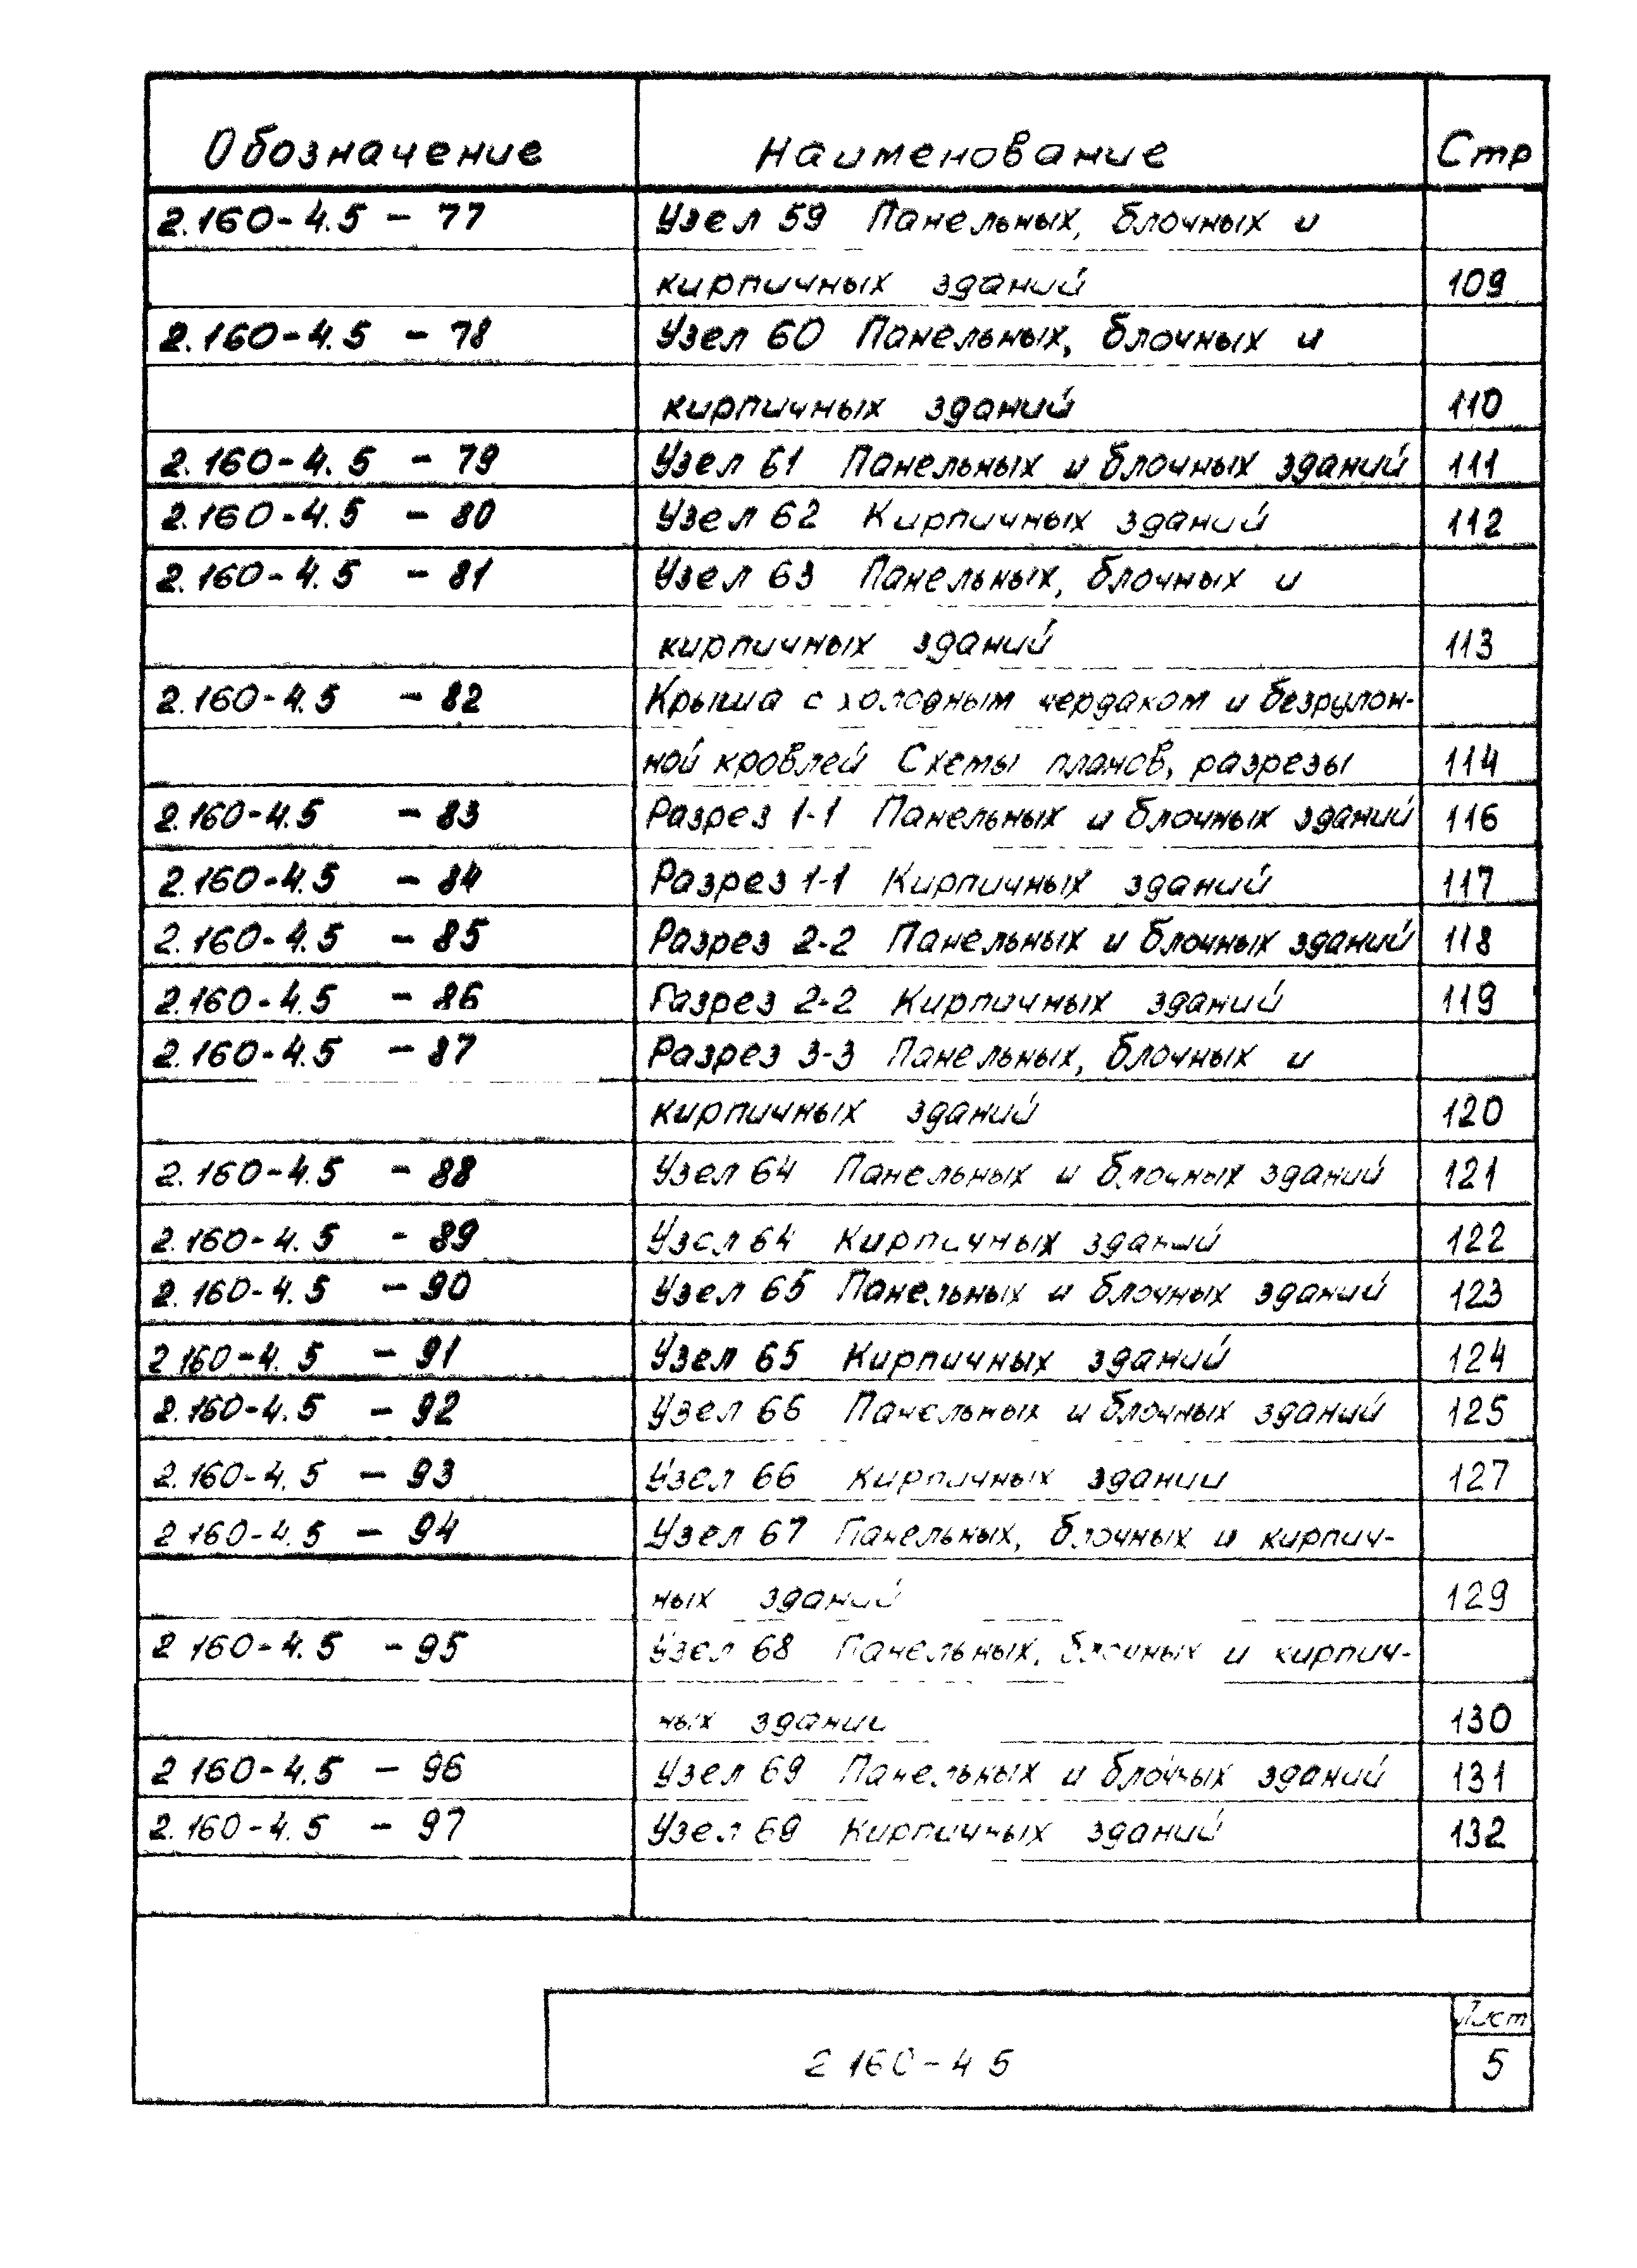 Обозначение Наименование Стр
2.160-4.5 - 77 Узел 59 Панельных, блочных и
кирпичных зданий 109
2.160-4.5 - 78 Узел 60 Панельных, блочных и
кирпичных зданий 110
2.160-4.5 - 79 Узел 61 Панельных и блочных зданий 111
2.160-4.5 - 80 Узел 62 Кирпичных зданий 112
2.160-4.5 - 81 Узел 63 Панельных, блочных и
кирпичных зданий 113
2.160-4.5 - 82 Крыша с холодным чердаком и безрулон-
ной кровлей Схемы планов, разрезы 114
2.160-4.5 - 83 Разрез 1-1 Панельных и блочных зданий 116
2.160-4.5 - 84 Разрез 1-1 Кирпичных зданий 117
2.160-4.5 - 85 Разрез 2-2 Панельных и блочных зданий 118
2.160-4.5 - 86 Разрез 2-2 Кирпичных зданий 119
2.160-4.5 - 87 Разрез 3-3 Панельных, блочных и
кирпичных зданий 120
2.160-4.5 - 88 Узел 64 Панельных и блочных зданий 121
2.160-4.5 - 89 Узел 64 Кирпичных зданий 122
2.160-4.5 - 90 Узел 65 Панельных и блочных зданий 123
2 160-4.5 - 91 Узел 65 Кирпичных зданий 124
2.160-4.5 - 92 Узел 66 Панельных и блочных зданий 125
2.160-4.5 - 93 Узел 66 Кирпичных здании 127
2 160-4.5 - 94 Узел 67 Панельных, блочных и кирпич-
ных зданий 129
2 160-4.5 - 95 Узел 68 Панельных, блочных и кирпич-
ных здании 130
2 160-4.5 - 96 Узел 69 Панельных и блочных зданий 131
2.160-4.5 - 97 Узел 69 Кирпичных зданий 132
Лист
2 160-4 5 5